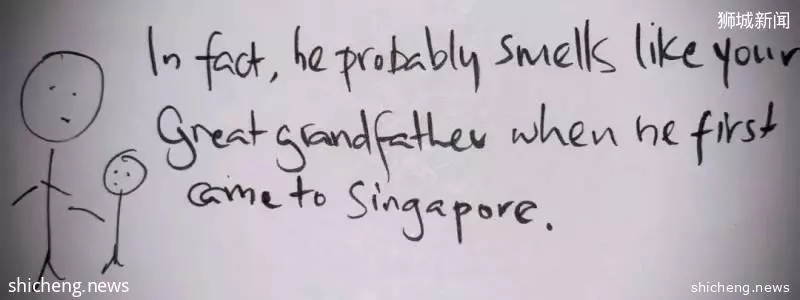 狮城新闻
In fact, he probably smells like your
Great grandfather when he first
came to Singapore.
shicheng.news
shicheng.news